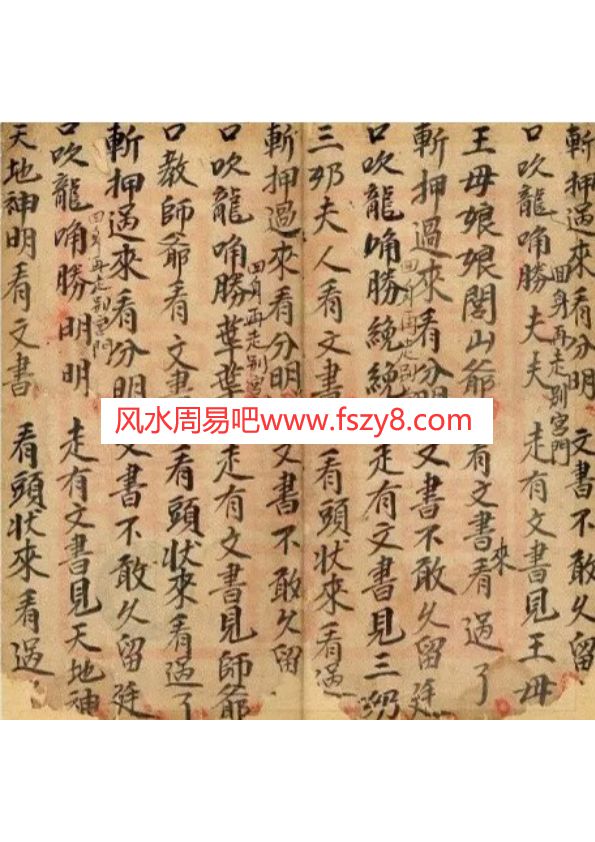 斬押過來看分明 文書不敢久留
回身再走別宮門
口吹龍唃勝夫夫 走有文書見王母
王母娘娘閭山爺 文書看來過了
斬押過來看分明 文書不敢久留廷
回身再走別
口吹龍唃勝 走有文書見三邜
三邜夫人看文書 看頭狀來看過
斬押過來看分明 文書不敢久留
回身再走別宮
口吹龍唃勝 走有文書見師爺
口教師爺看文書 看頭狀來看過了
斬押過來看分明 文書不敢久留廷
回身再走別宮門
口吹龍唃勝明明 走有文書見天地神
天地神明看文書 看頭狀來看過
风水周易吧www.fszy8.com